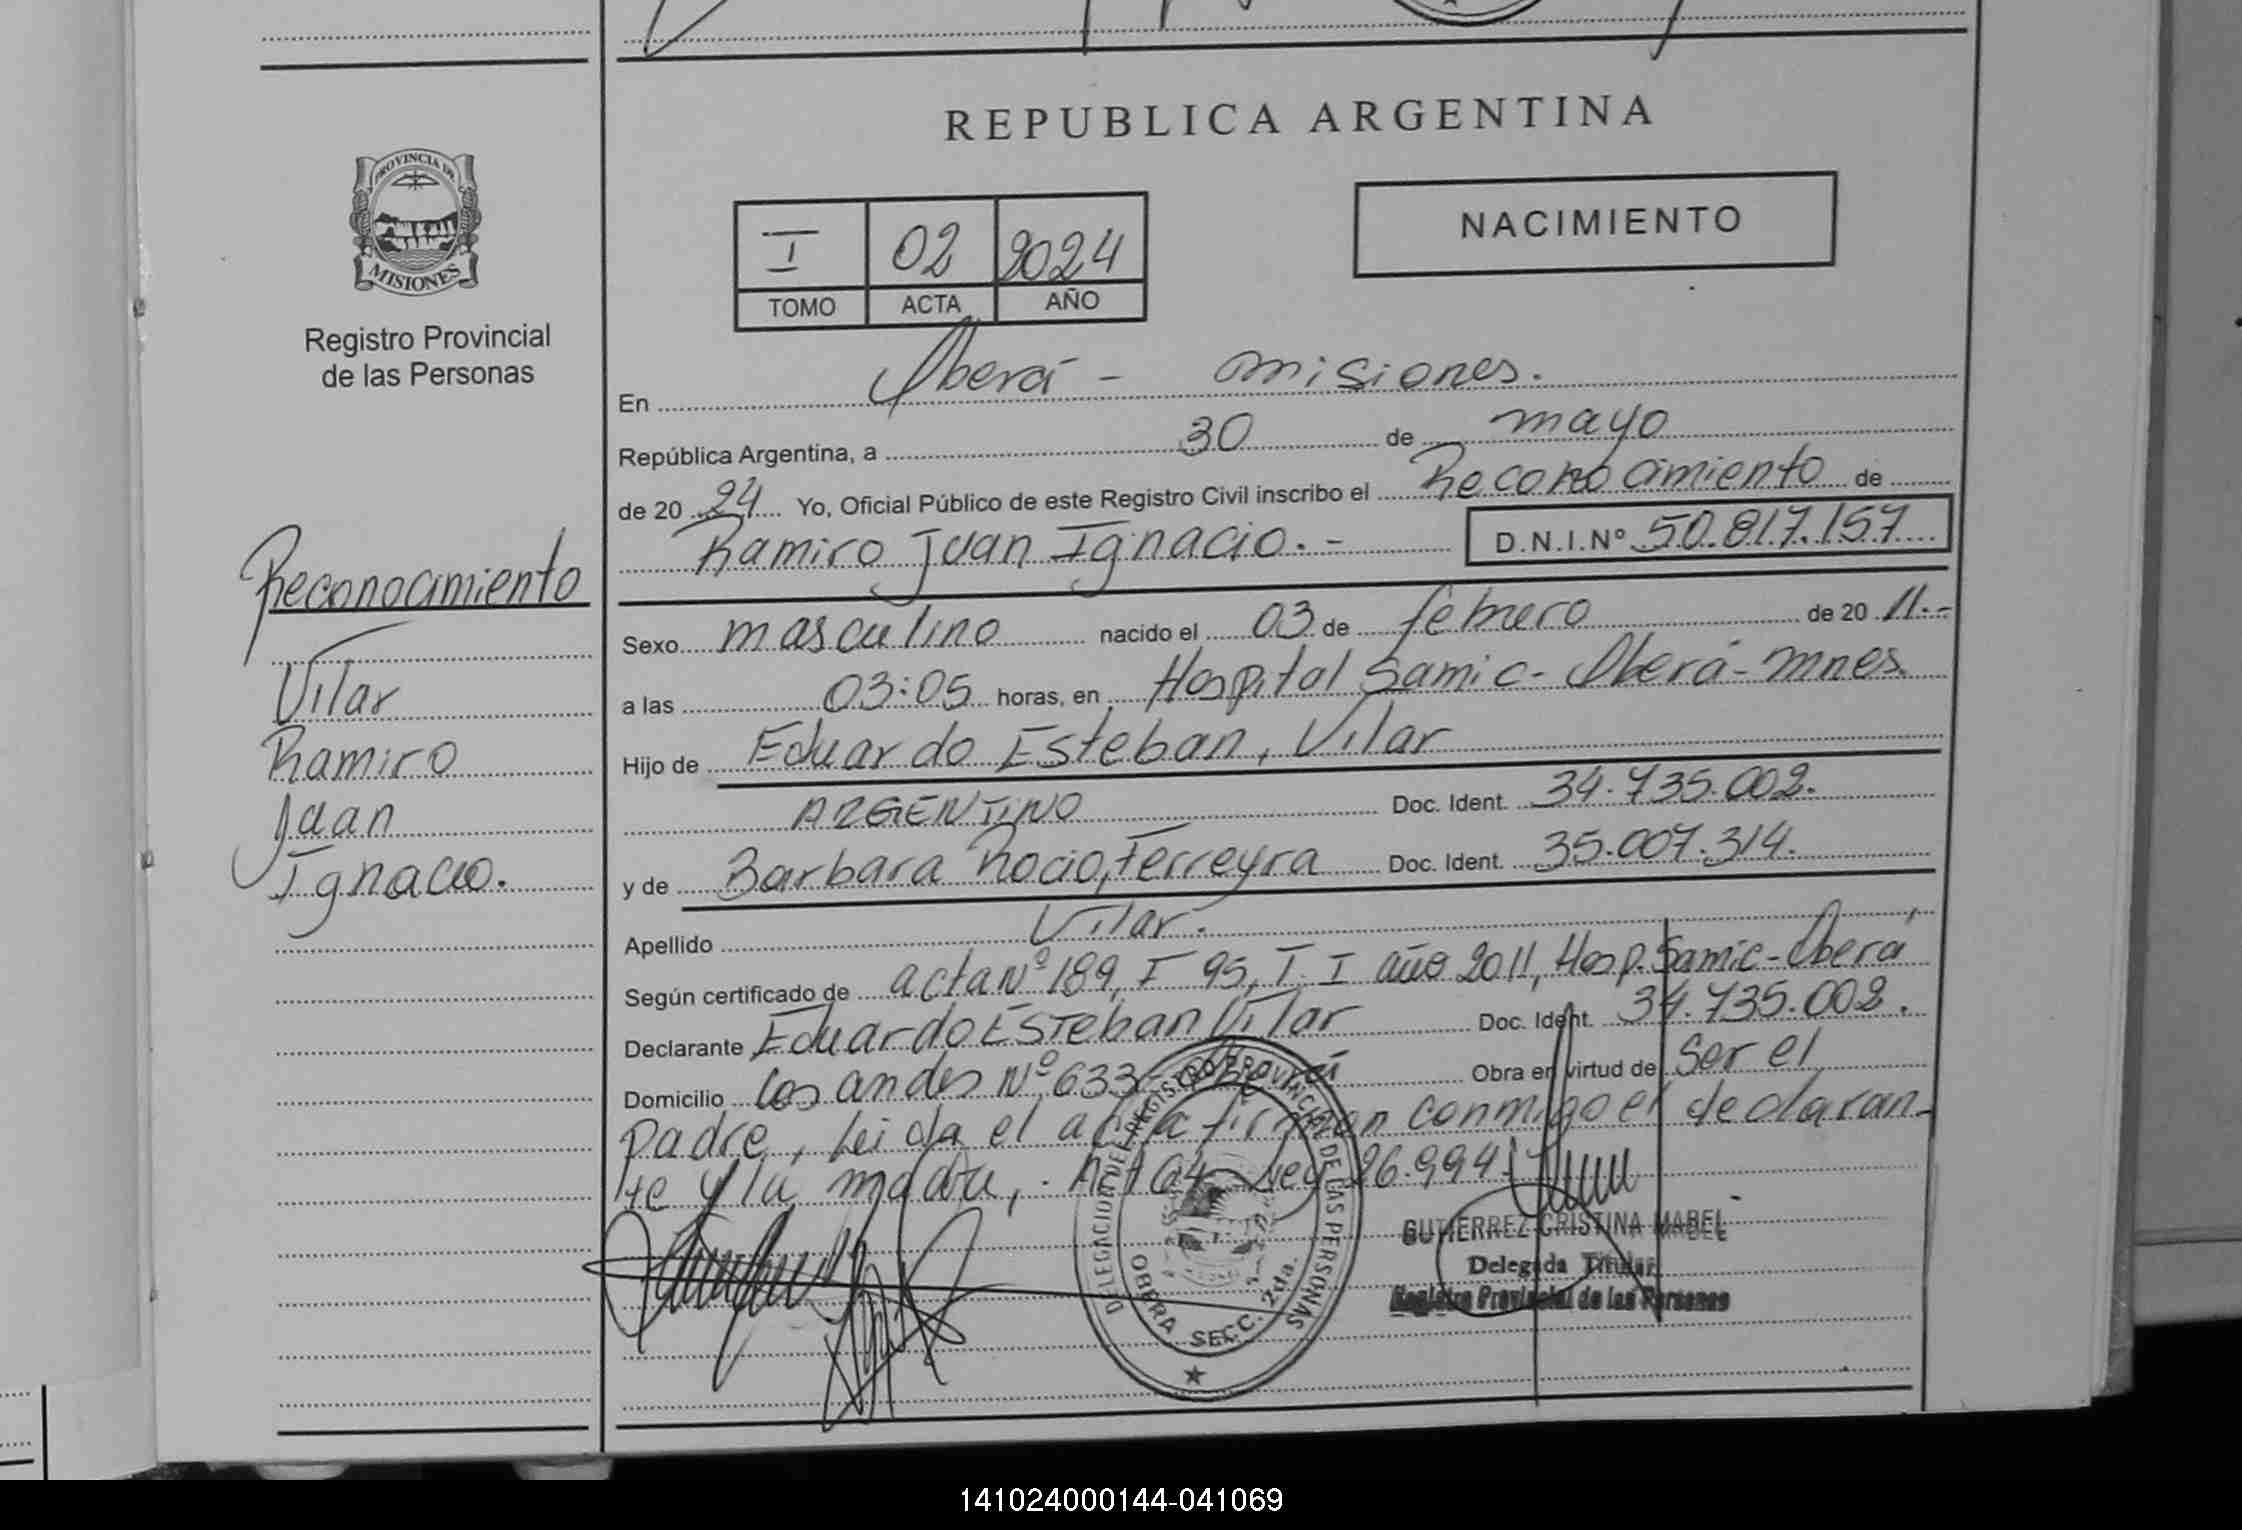 REPUBLICA ARGENTINA
PROVINCIA DE
MISIONES
Registro Provincial
de las Personas
NACIMIENTO
I 02 2024
TOMO ACTA AÑO
En Oberá - misiones.
República Argentina, a 30 de mayo
de 20 24 Yo, Oficial Público de este Registro Civil inscribo el Reconocimiento de
Ramiro Juan Ignacio. - D.N.I.Nº 50.817.157
Reconocimiento
Vilar
Ramiro
Juan
Ignacio.
Sexo masculino nacido el 03 de febrero de 20 11.-
a las 03:05 horas, en Hospital Samic - Oberá - mnes.
Hijo de Eduardo Esteban, Vilar
ARGENTINO Doc. Ident. 34.735.002.
y de Barbara Rocio, Ferreyra Doc. Ident. 35.007.314.
Apellido Vilar.
Según certificado de acta Nº 189, F 95, T. I año 2011, Hosp. Samic - Oberá
Declarante Eduardo Esteban Vilar Doc. Ident. 34.735.002.
Domicilio Los andes Nº 633 - Oberá Obra en virtud de Ser el
padre, Leida el acta firman conmigo el declaran-
te y la madre, . Art 64 Ley 26.994.
DELEGACION DEL REGISTRO PROVINCIAL DE LAS PERSONAS
OBERA SECC. 2da.
GUTIERREZ CRISTINA MABEL
Delegada Titular
Registro Provincial de las Personas
141024000144-041069